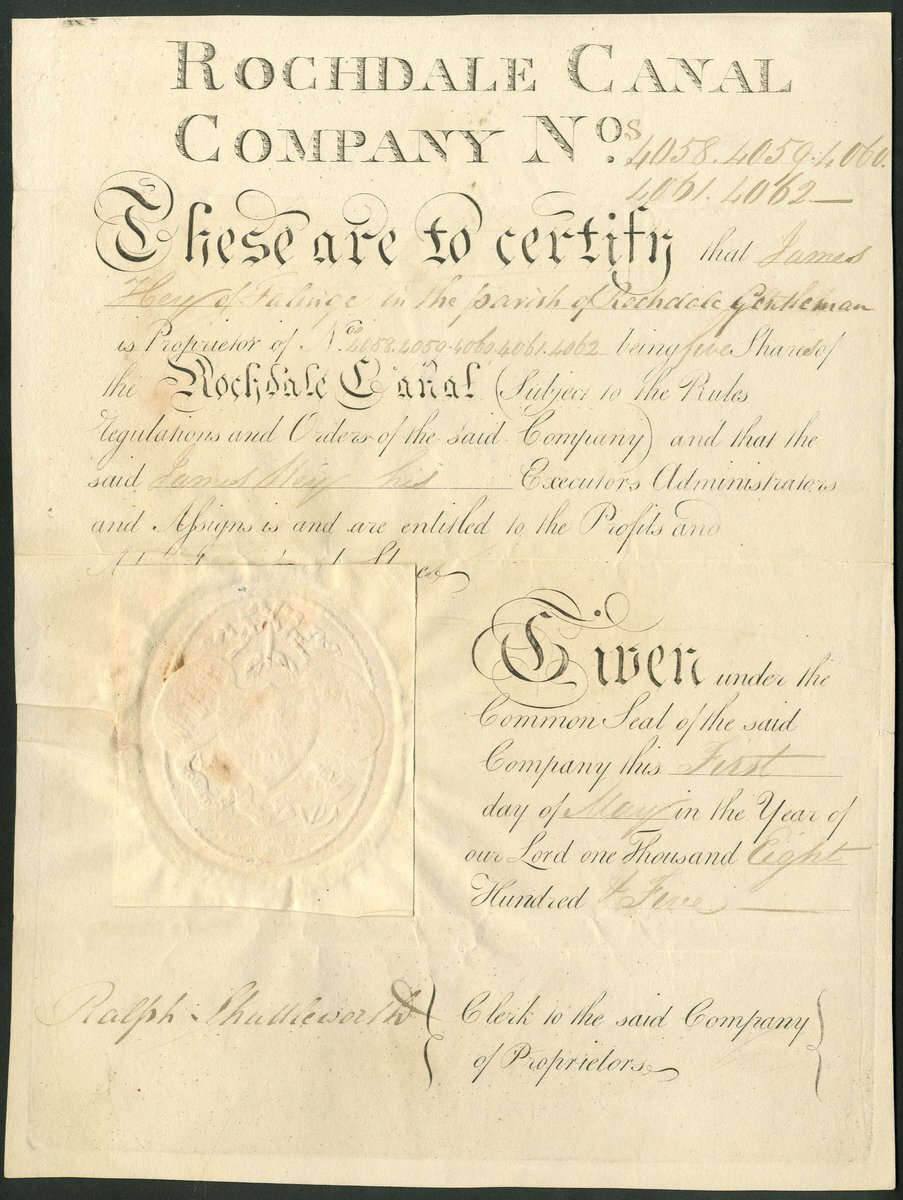 ROCHDALE CANAL
COMPANY Nos. 4058. 4059. 4060.
4061. 4062
These are to certify that James
Hey of Falinge in the parish of Rochdale Gentleman
is Proprietor of Nos. 4058. 4059. 4060. 4061. 4062 being five Shares of
the Rochdale Canal (Subject to the Rules
regulations and Orders of the said Company) and that the
said James Hey his Executors Administrators
and Assigns is and are entitled to the Profits and
Given under the
Common Seal of the said
Company this First
day of May in the Year of
our Lord one Thousand Eight
Hundred & Five
Ralph Shuttleworth
Clerk to the said Company
of Proprietors